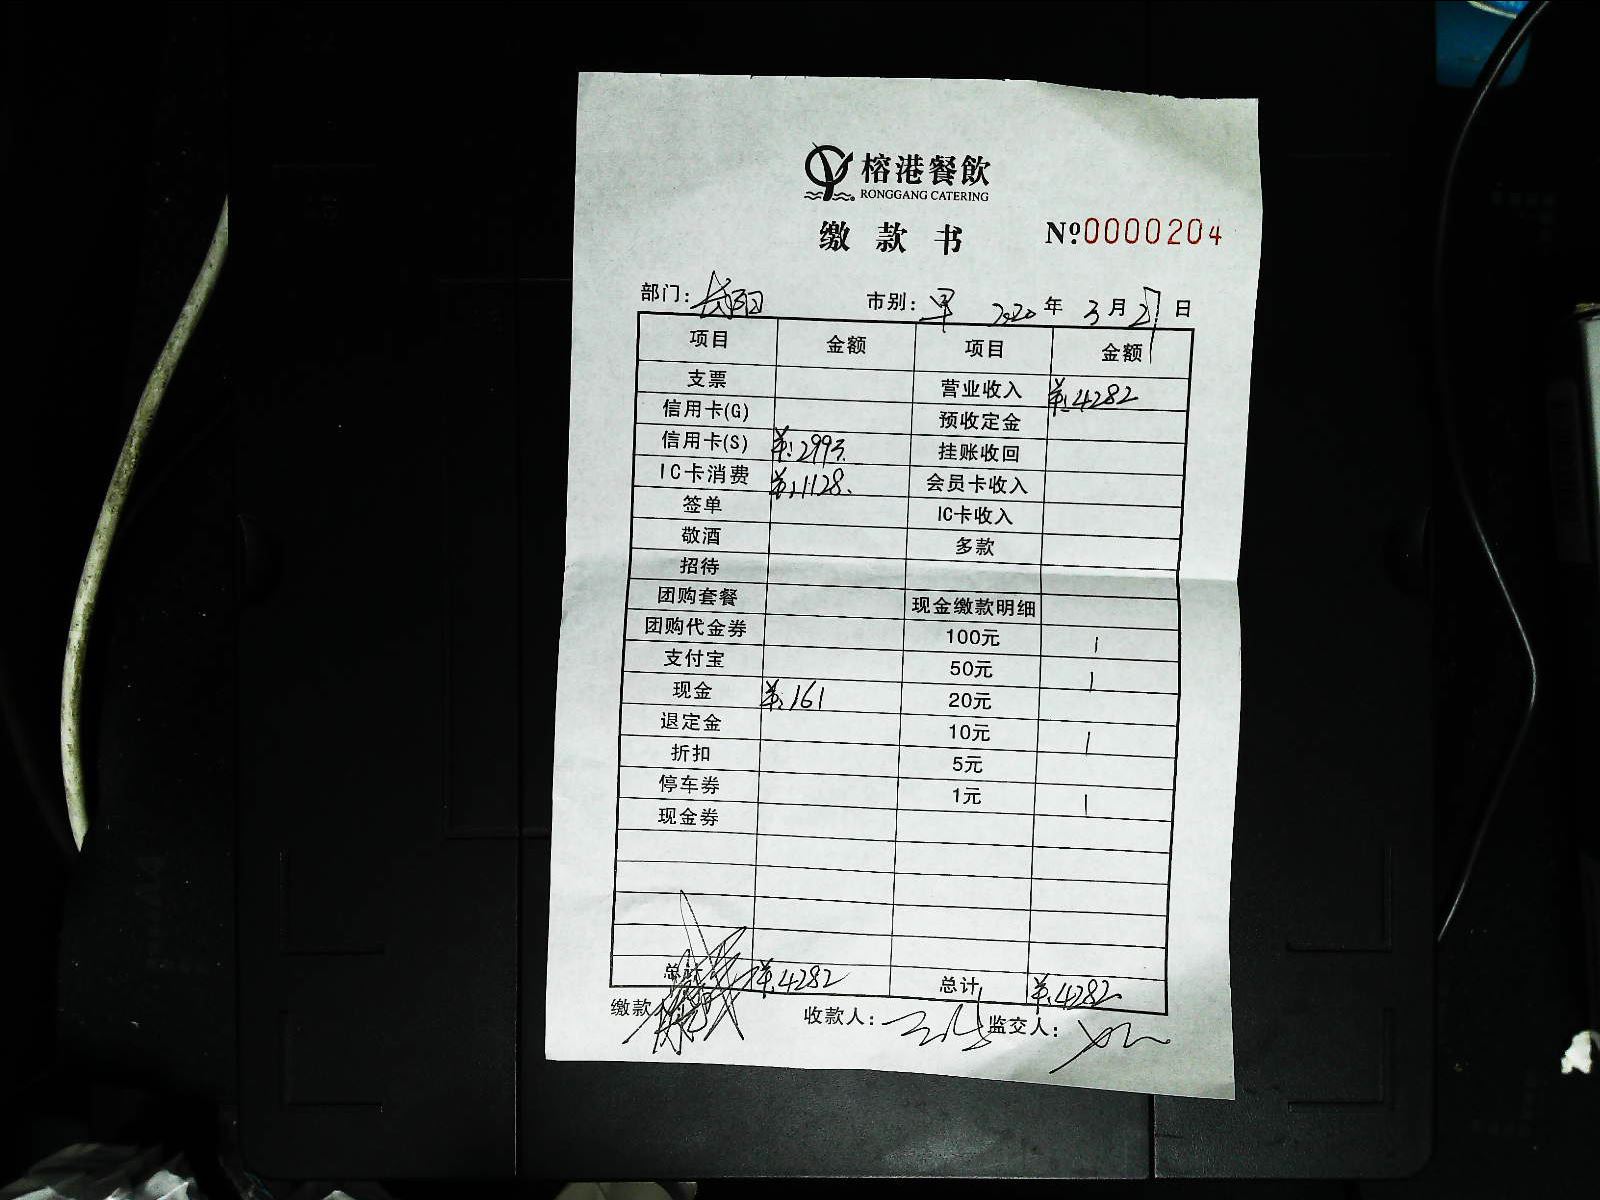 榕港餐飲
RONGGANG CATERING
缴款书 №0000204
部门: 市别: 早 2020年3月27日
项目 金额 项目 金额
支票 营业收入 羊:4282
信用卡(G) 预收定金
信用卡(S) 羊:2993. 挂账收回
IC卡消费 羊:1128. 会员卡收入
签单 IC卡收入
敬酒 多款
招待
团购套餐 现金缴款明细
团购代金券 100元 1
支付宝 50元 1
现金 羊:161 20元
退定金 10元 1
折扣 5元
停车券 1元 1
现金券
总计 羊:4282 总计 羊:4282
缴款 收款人: 监交人: